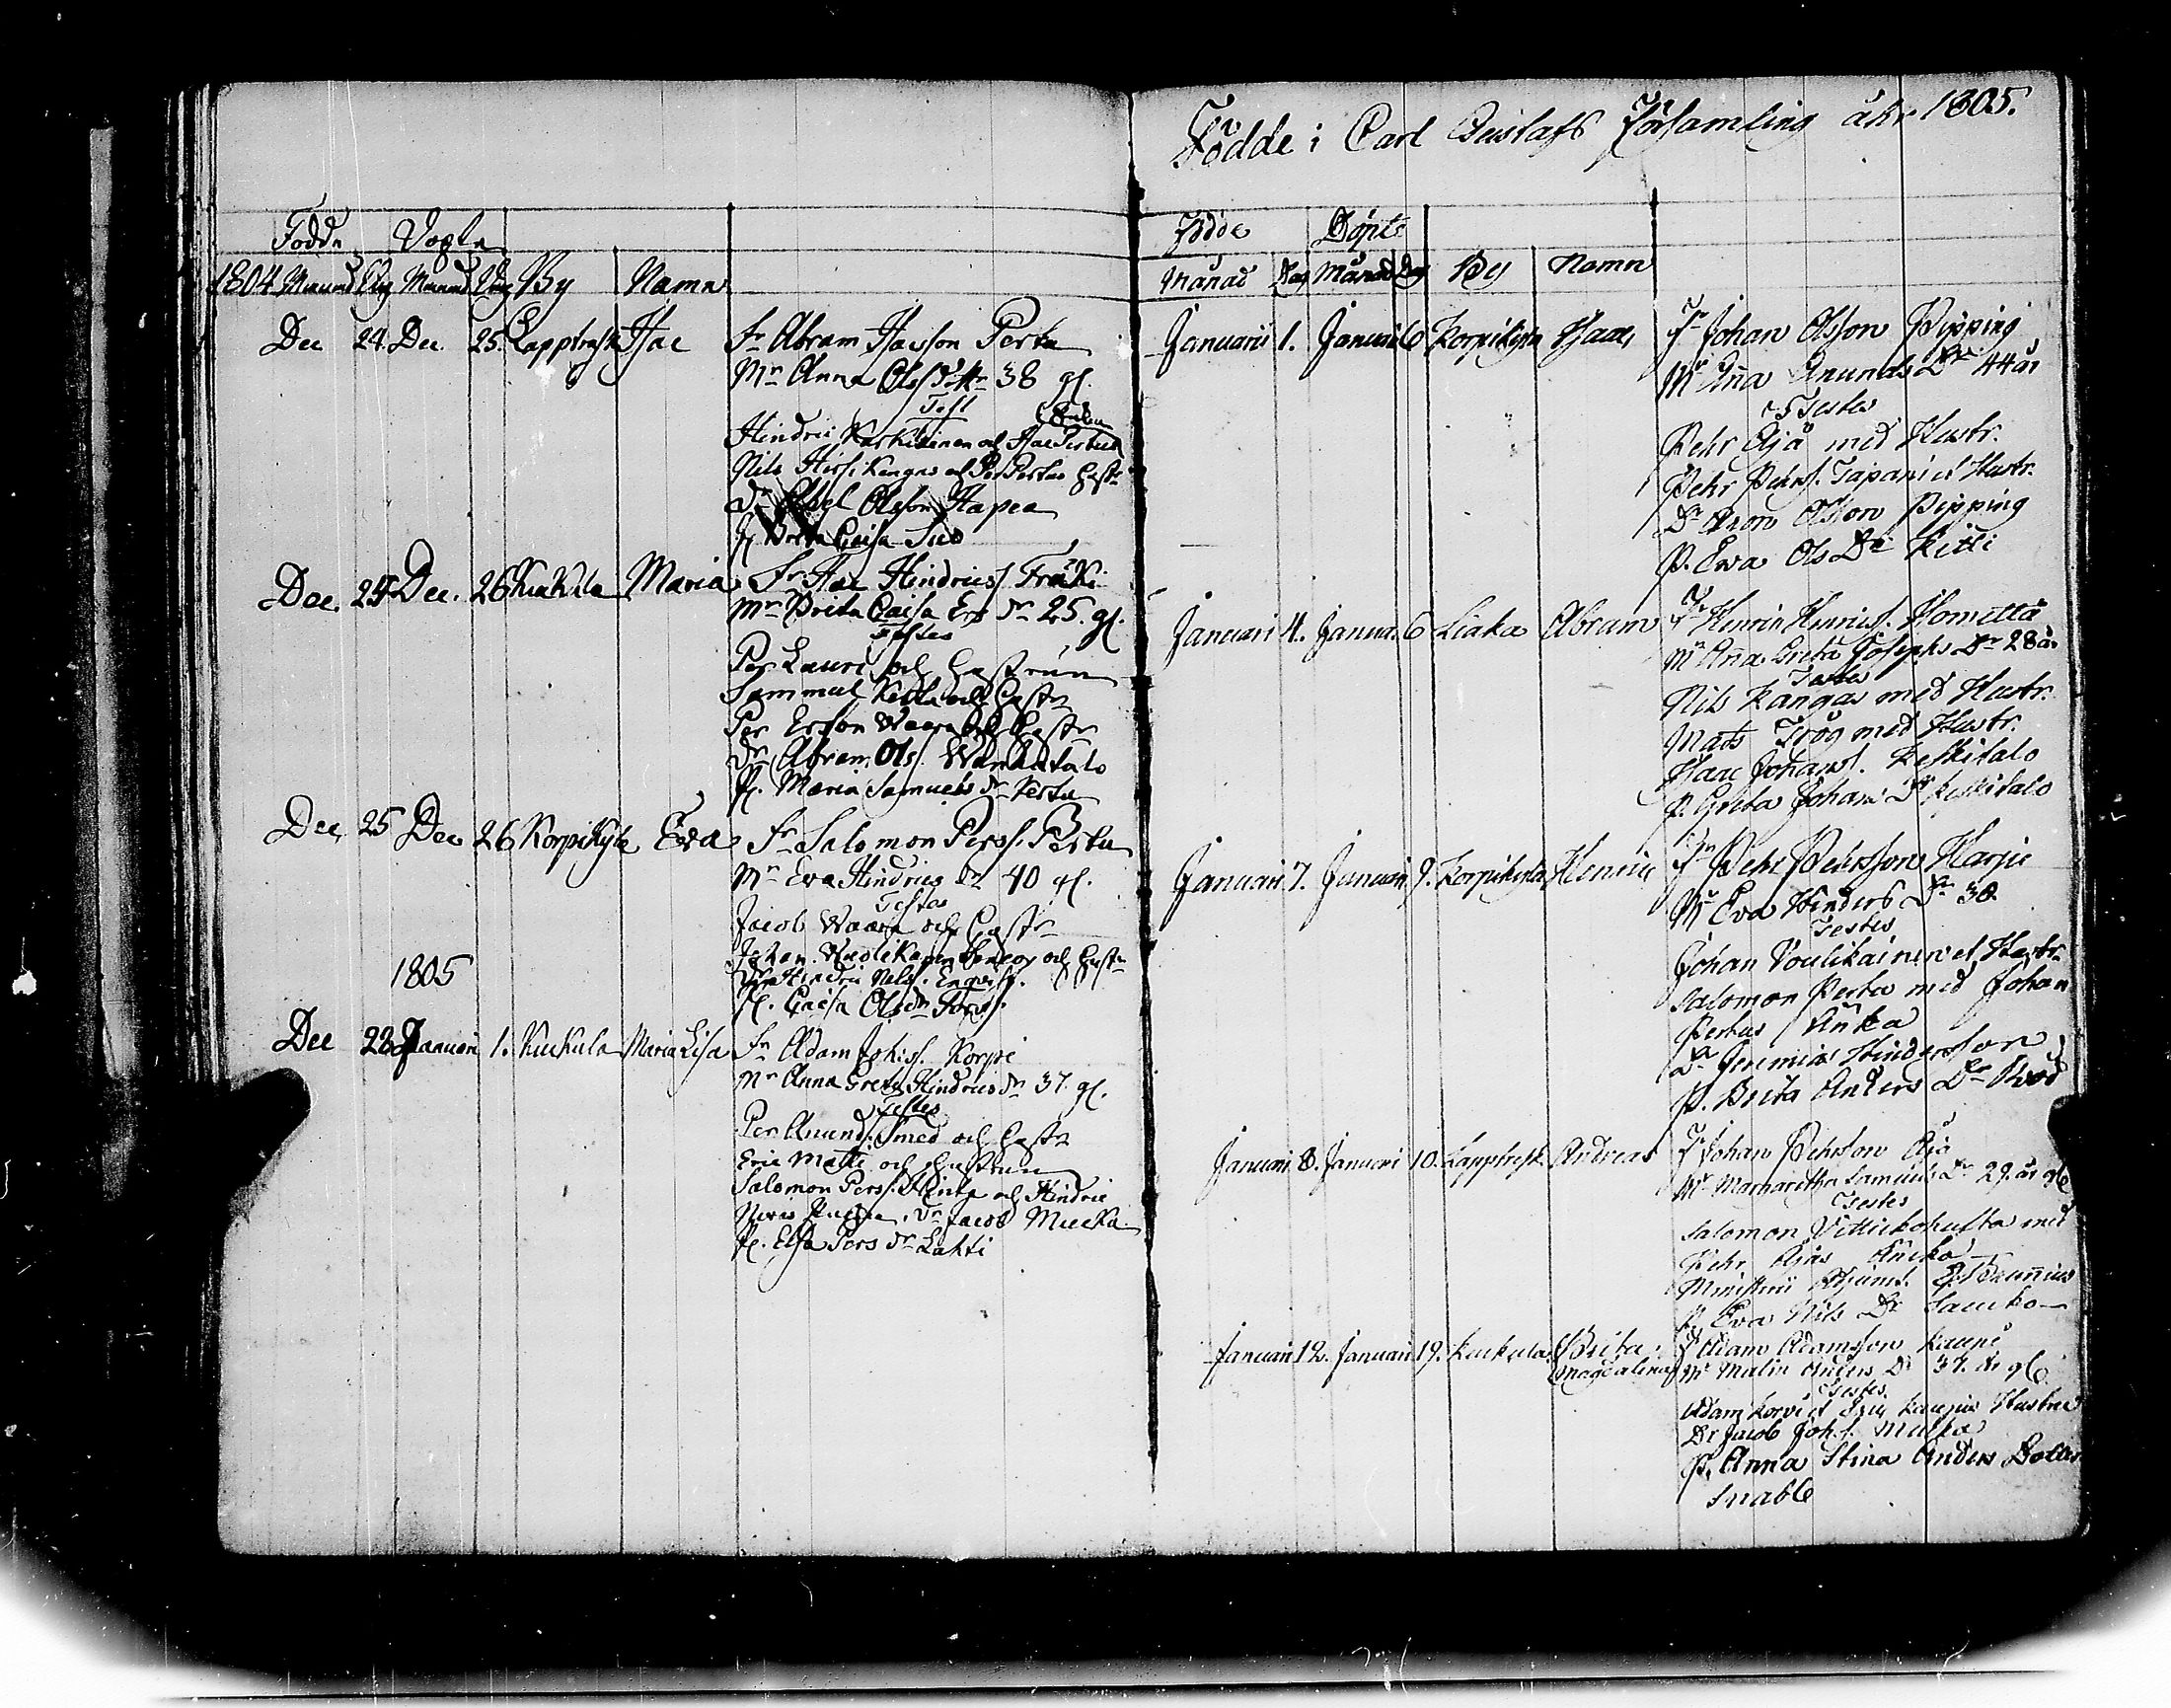 Födde Döpte
1804 Månad Dag Månad Dag By Namn
Dec 24. Dec. 25. Lappträsk Isac Fr Abram Isacson Perku
Mr Anna Ols dottr 38 gl.
Test
Hindric Karkiainen och Isac Perkus
Nils Kangas och Per Perkus hustr
Dr Abel Olsson Hapea
P. Brita Caisa Suo
Dec. 24 Dec. 26 Kukula Maria Fr Isac Hindricss. Fräki
Mr Brita Caisa Ers dr 25. gl.
Testes
Per Lauri och hustrun
Sammul Kerttu och hustr
Per Erson Waara och hustr
Dr Abram Ols. Wanhatalo
P. Maria Samuels dr Kerttu
Dec 25 Dec 26 Korpikylä Eva Fr Salomon Perss. Perku
Mr Eva Hindrics dr 40 gl.
Testes
Jacob Waara och hustr
Johan Wuolikainen och hustr
Dr Hindric Nilss. Engvist.
P. Caisa Ols dr
1805
Dec 28. Januari 1. Kukula Maria Lisa Fr Adam Johss. Korpi
Mr Anna Greta Hindrics dr 37. gl.
Testes
Per Anunds. Smed och hustr
Eric Matti och hustrun
Salomon Perss. och Hindric
Dr Jacob Mucka
P. Elsa Pers dr Lahti
Födde i Carl Gustafs Församling åhr 1805.
Födde Döpte
Månad Dag Månad Dag By Namn
Januarii 1. Januari 6 Korpikylä Isaac Fr Johan Olsson Pipping
Mr Aña Anunds Dr 44 år
Testes
Pehr Äjä med Hustr.
Pehr Pehrs. Tapani et Hustr.
Dr Aron Olsson Pipping
P. Ewa Ols Dr Kitti
Januari 4. Januari 6 Liaka Abram Fr Henric Henrics. Hometta
Mr Aña Greta Josephs Dr 28 år
Testes
Nils Kangas med Hustr.
Mats Isög med Hustr.
Isaac Johans. Keskitalo
P. Greta Johans Dr Keskitalo
Januari 7. Januari 9. Korpikylä Henric Fr Pehr Pehrsson Harju
Mr Eva Hinders Dr 30.
Testes
Johan Voulikainen et Hustr.
Salomon Perku med Johan
Perkus Änka
Dr Jeremias Hindersson
P. Brita Anders Dr
Januari 8. Januari 10. Lappträsk Andreas Fr Johan Pehrsson Äjä
Mr Margaretha Samuels Dr 29. år gl
Testes
Salomon med
Pehr Äjäs Äncka
Ministerii Adjunct.
P. Eva Nils Dr
Januari 12. Januari 19. Kukula Brita Magdalena Fr Adam Adamsson Kauppi
Mr Malin Anders Dr 37. år gl
Testes
Adam Korvi et Eric Kauppis Hustrur
Dr Jacob Johs. Mucka
P. Anna Stina Anders Dotter
Snabb